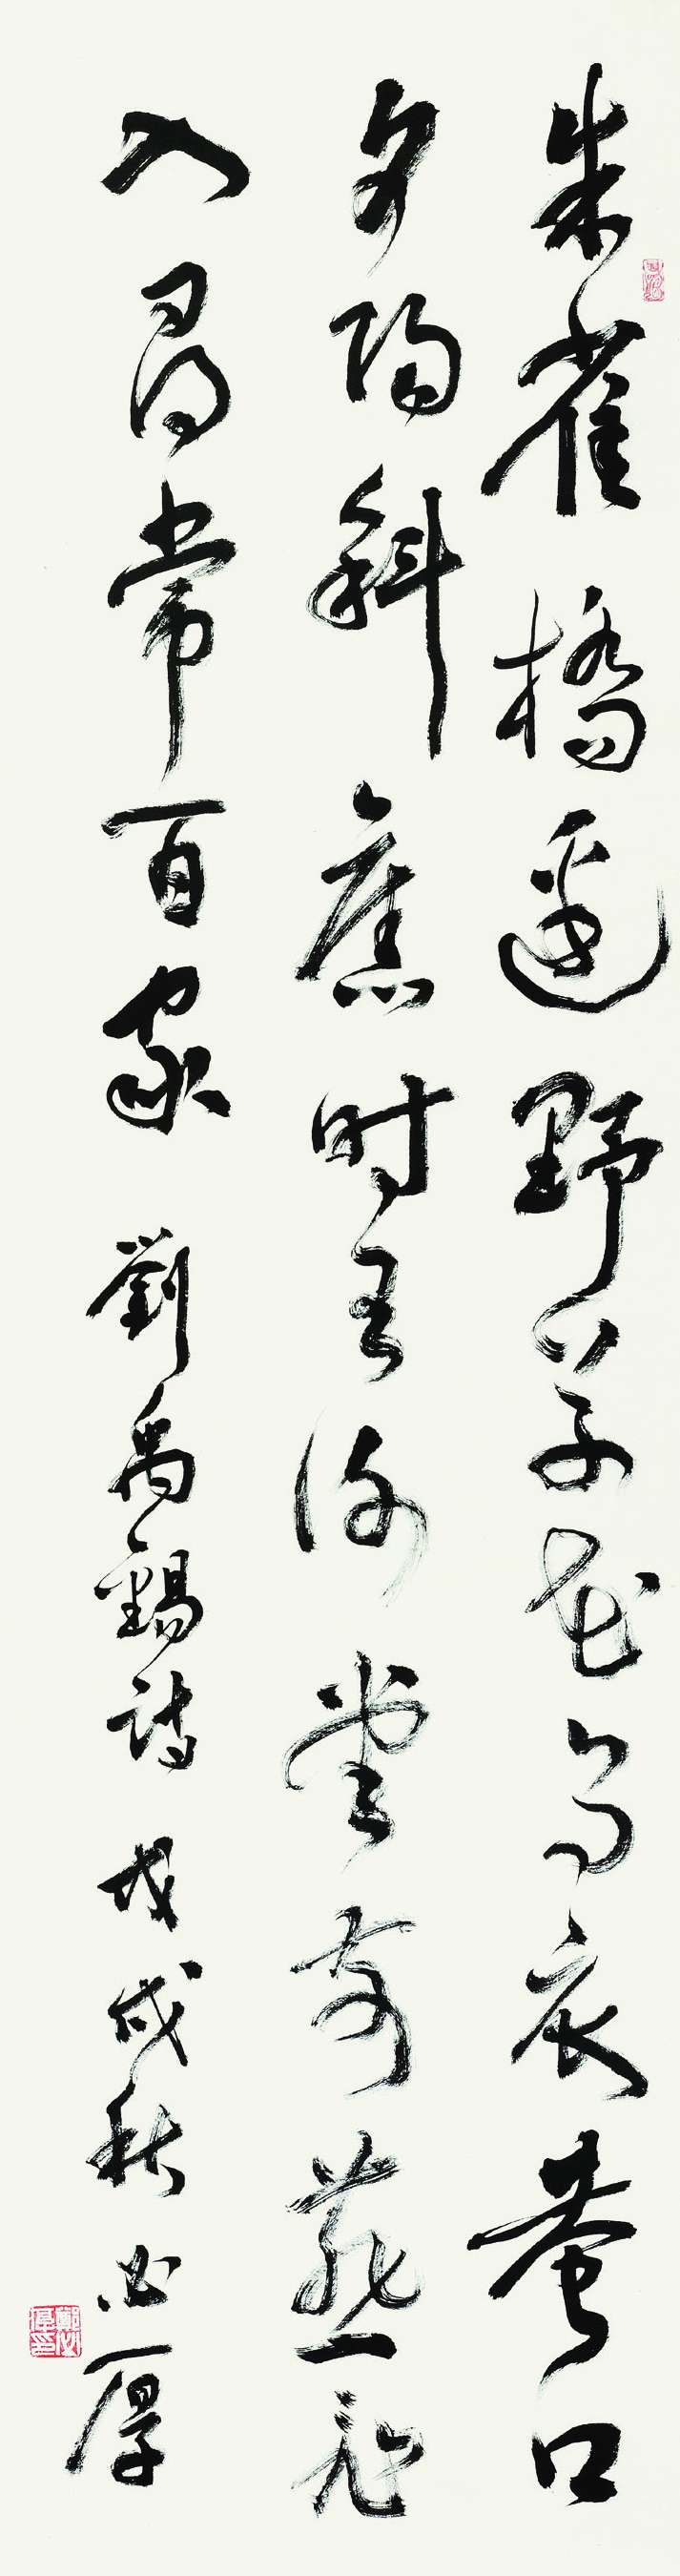 朱雀橋邊野草花烏衣巷口
夕陽斜舊时王謝堂前燕飛
入尋常百家 劉禹錫詩 戊戌秋 必厚
鄭必厚印